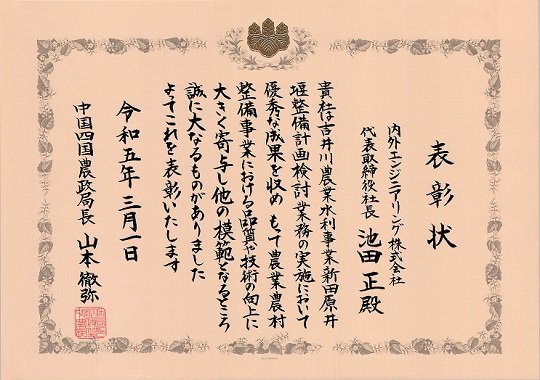 表彰状
内外エンジニアリング株式会社
代表取締役社長 池田 正殿
貴社は吉井川農業水利事業新田原井
堰整備計画検討業務の実施において
優秀な成果を収め もって農業農村
整備事業における品質や技術の向上に
大きく寄与し他の模範となるところ
誠に大なるものがありました
よってこれを表彰いたします
令和五年三月一日
中国四国農政局長 山本徹弥